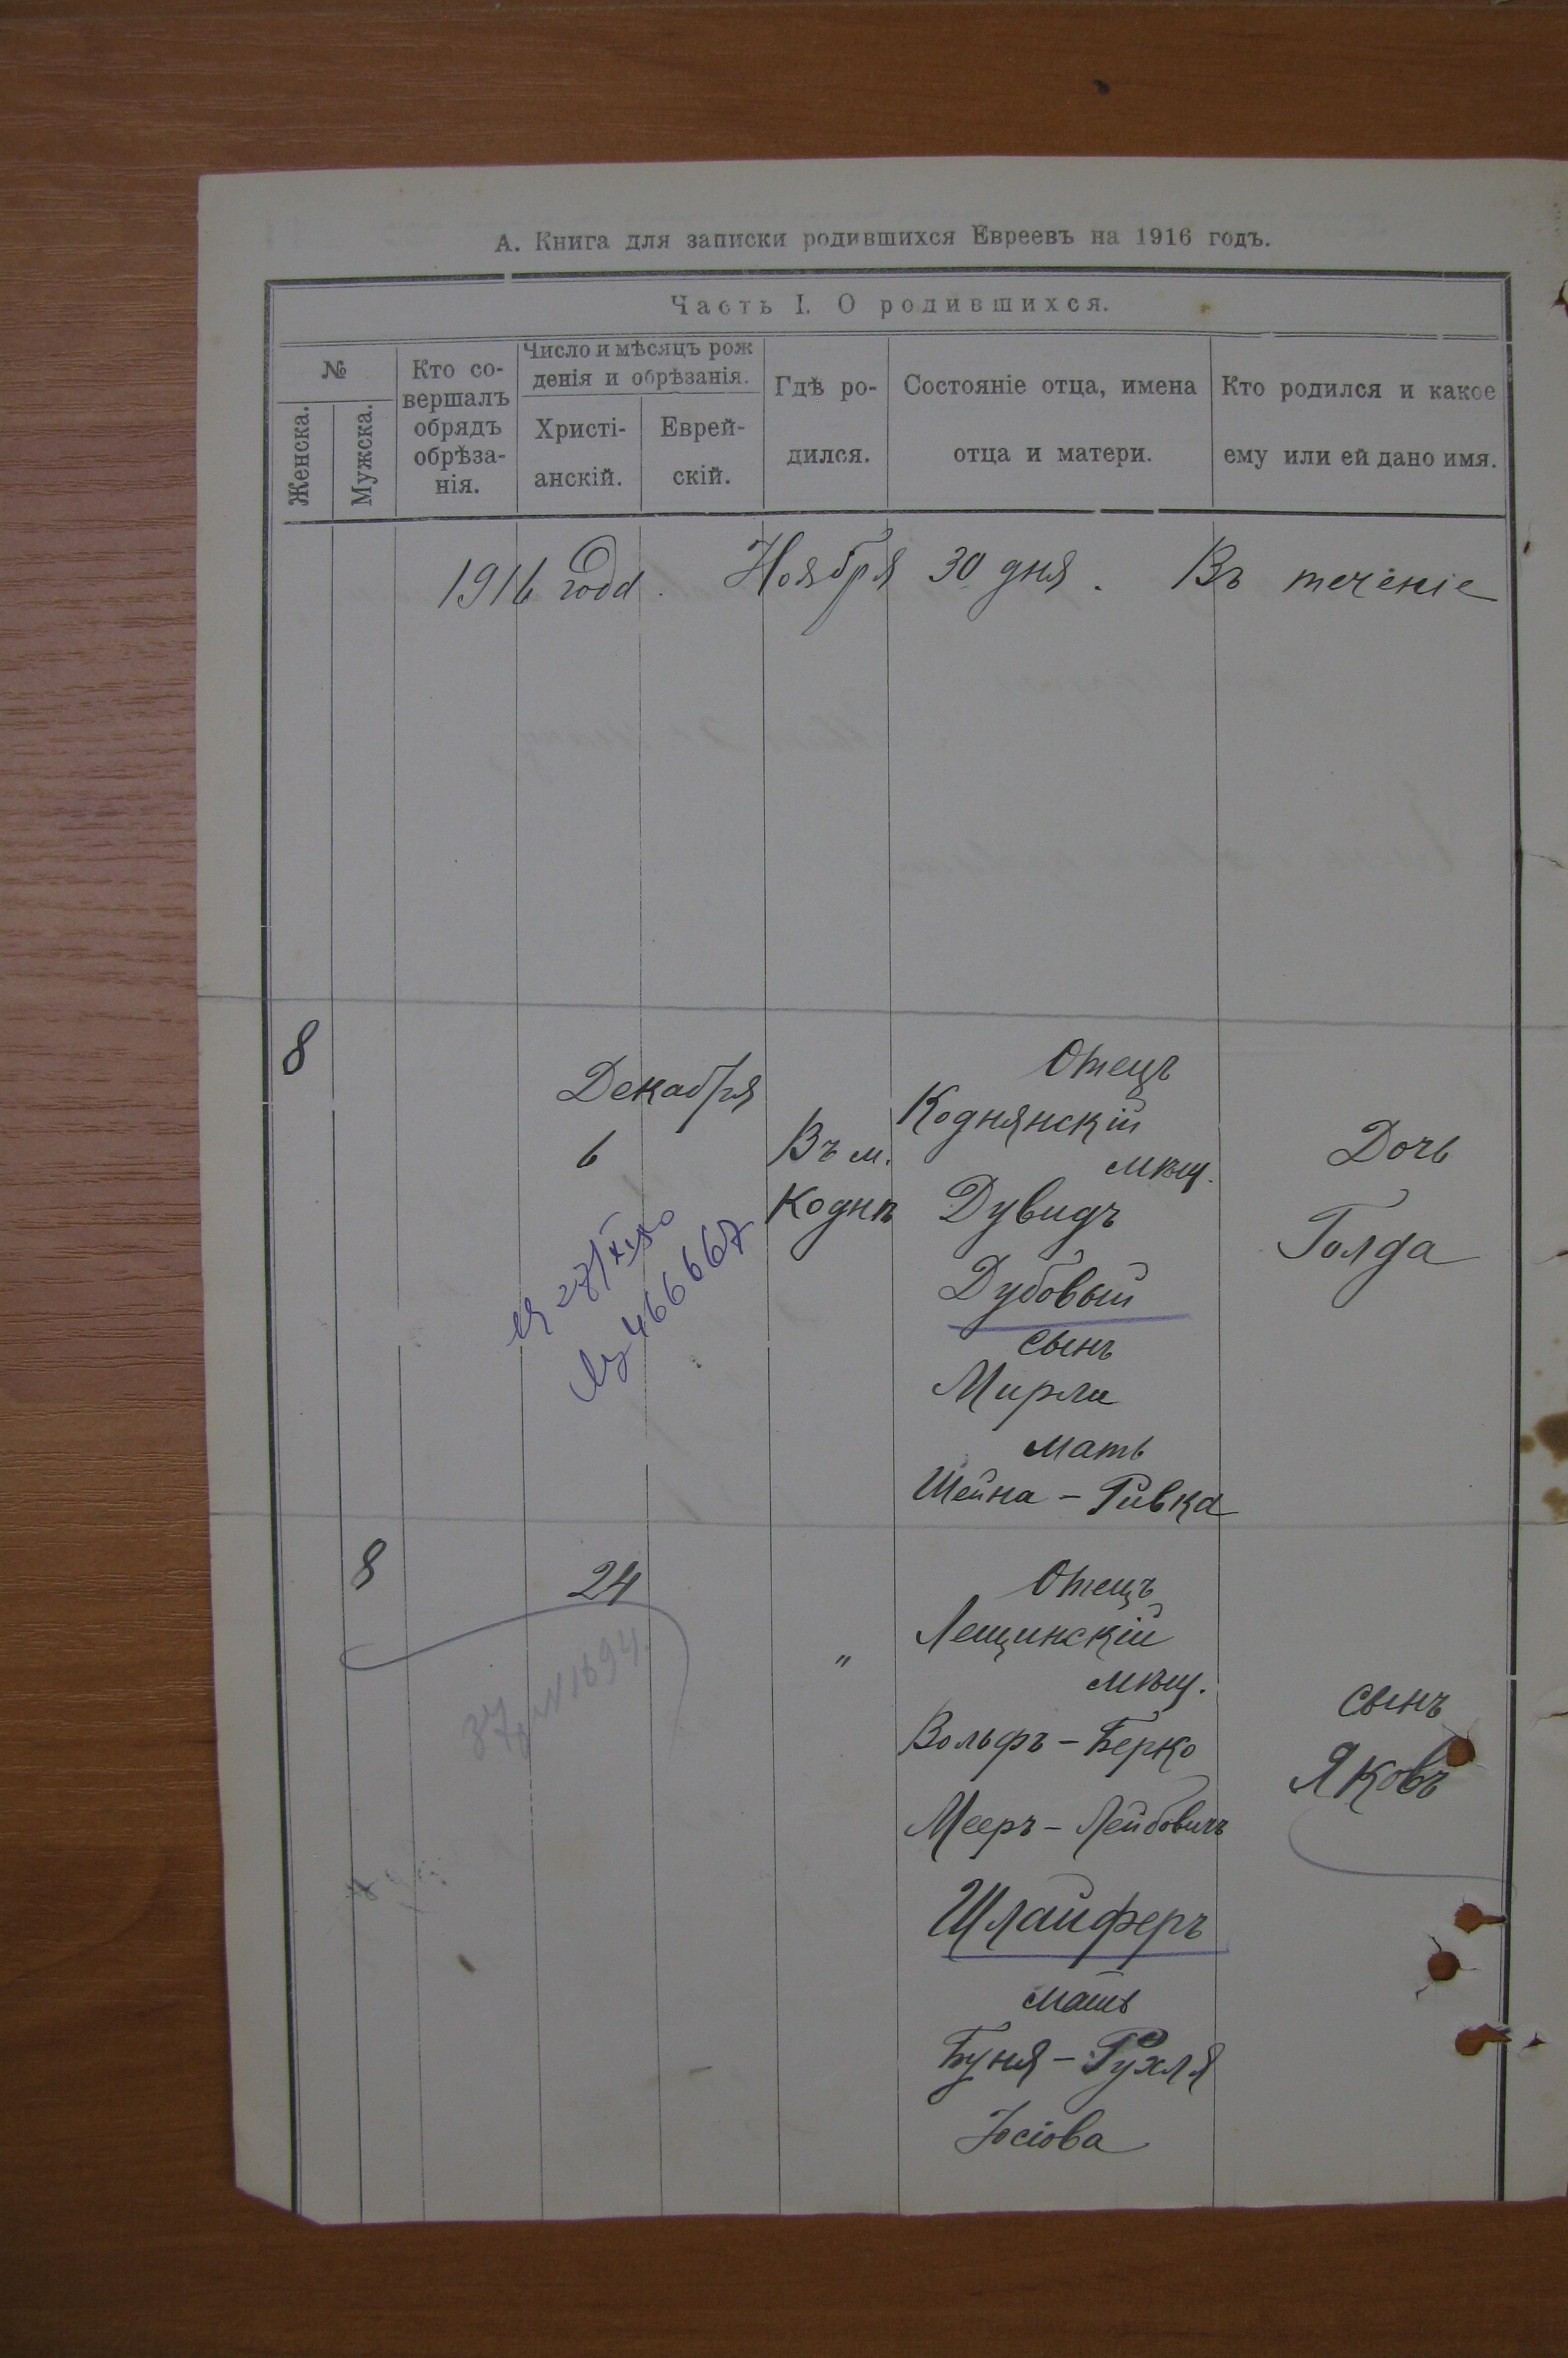 А. Книга для записки родившихся Евреевъ на 1916 годъ.
Часть I. О родившихся.
№
Женска.
Мужска.
Кто со-
вершалъ
обрядъ
обрѣза-
нія.
Число и мѣсяцъ рож
денія и обрѣзанія.
Христі-
анскій.
Еврей-
скій.
Гдѣ ро-
дился.
Состояніе отца, имена
отца и матери.
Кто родился и какое
ему или ей дано имя.
1916 года. Ноября 30 дня. Въ теченіе
8
Декабря
6
Въ м.
Коднѣ
Отецъ
Коднянскій
мѣщ.
Дувидъ
Дубовый
сынъ
Мирли
мать
Шейна - Ривка
Дочь
Голда
466667
8
24
"
Отецъ
Лещинскій
мѣщ.
Вольфъ - Берко
Мееръ - Лейбовичъ
Шлайферъ
мать
Буня - Рухля
Іосіова
сынъ
Яковъ
№ 1694.